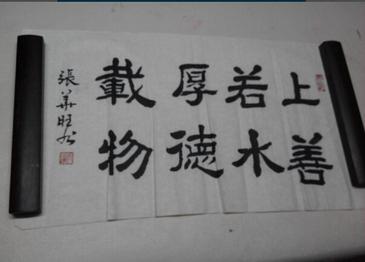 上善
若水
厚德
載物
張華旺书